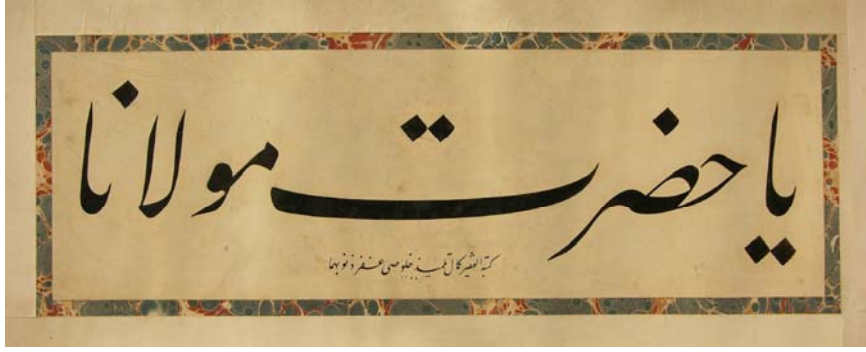 يا حضرت مولانا
كتبه الفقير كمال تلميذ خلوصى غفر ذنوبهما